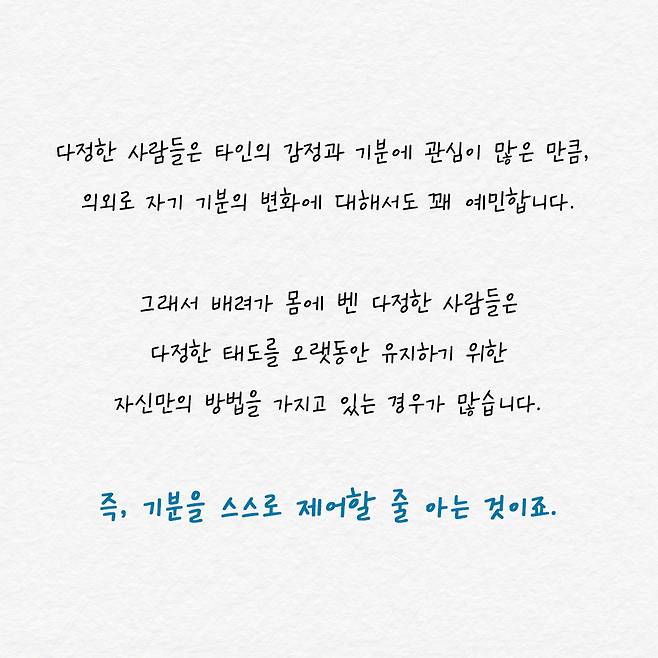 다정한 사람들은 타인의 감정과 기분에 관심이 많은 만큼,
의외로 자기 기분의 변화에 대해서도 꽤 예민합니다.
그래서 배려가 몸에 벤 다정한 사람들은
다정한 태도를 오랫동안 유지하기 위한
자신만의 방법을 가지고 있는 경우가 많습니다.
즉, 기분을 스스로 제어할 줄 아는 것이죠.